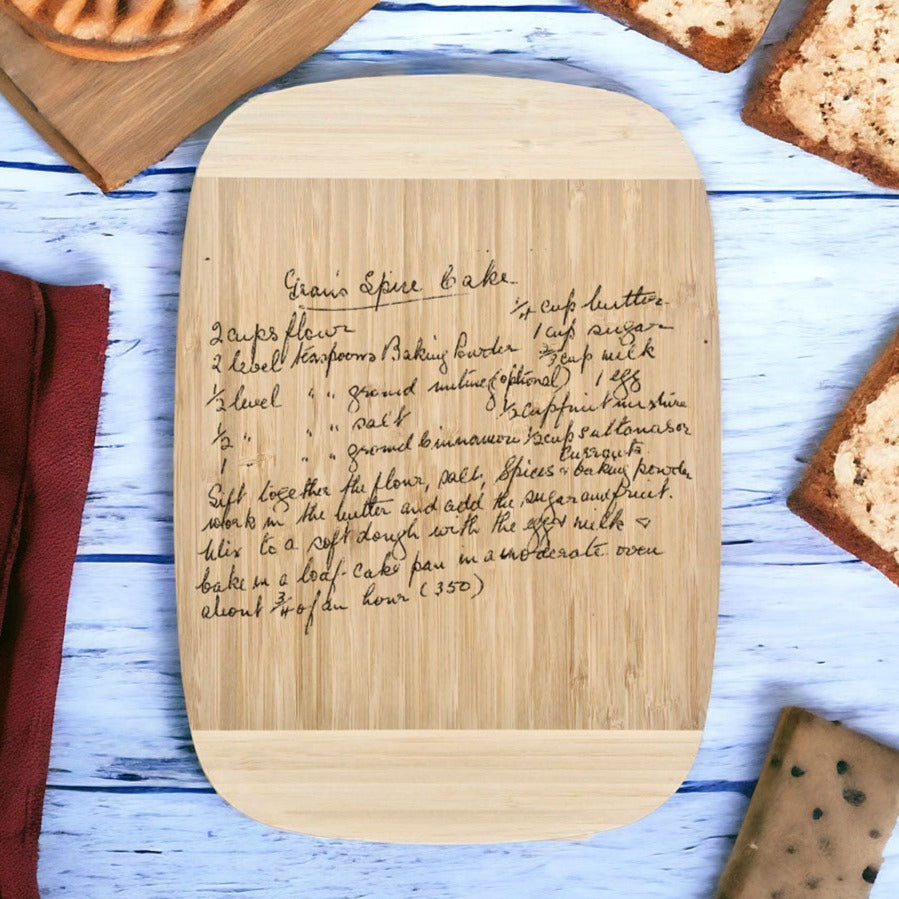 Gran's Spice Cake
1/4 cup butter
2 cups flour 1 cup sugar
2 level teaspoons Baking Powder 2/3 cup milk
1/2 level " " ground nutmeg (optional) 1 egg
1/2 " " " salt 1/2 cup fruit mixture
1 " " " ground Cinnamon 1/2 cup sultanas or
Currants
Sift together the flour, salt, Spices & baking powder
work in the butter and add the sugar and fruit.
Mix to a soft dough with the egg & milk &
bake in a loaf-cake pan in a moderate oven
about 3/4 of an hour (350)